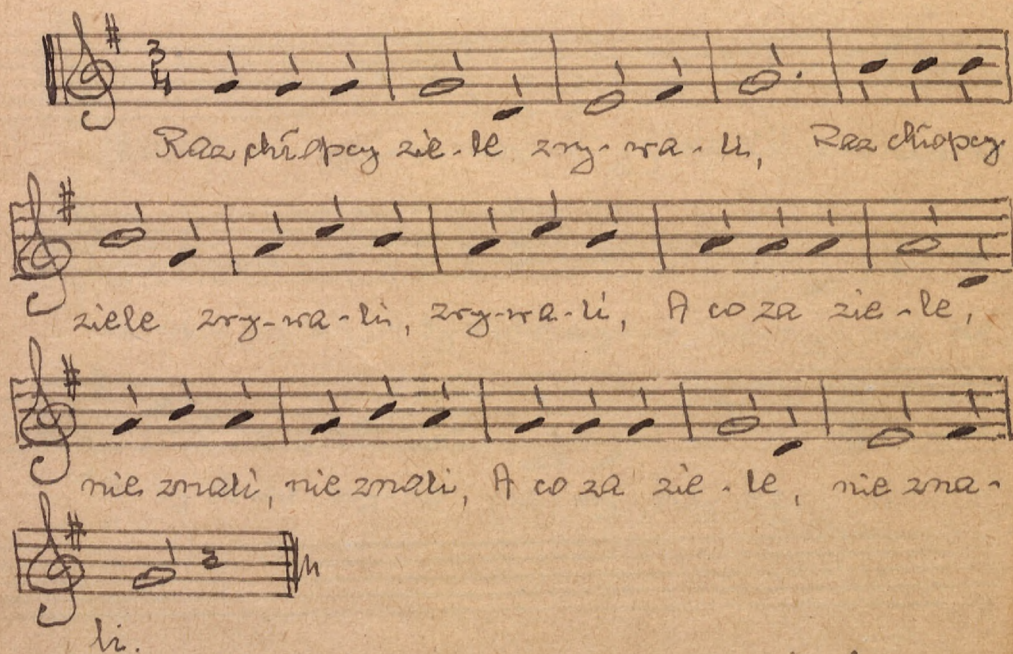 3/4
Raz chłopcy zie-le zry-wa-li, Raz chłopcy
ziele zry-wa-li, zry-wa-li, A co za zie-le,
nie znali, nie znali, A co za zie-le, nie zna-
li.